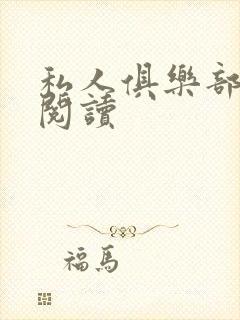 私人俱樂部
閱讀
福馬